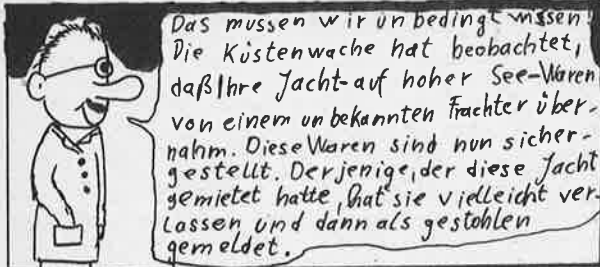 Das mussen wir unbedingt wissen!
Die Küstenwache hat beobachtet,
daß Ihre Jacht-auf hoher See-Waren
von einem unbekannten Frachter über-
nahm. Diese Waren sind nun sicher-
gestellt. Derjenige, der diese Jacht
gemietet hatte, hat sie vielleicht ver-
lassen und dann als gestohlen
gemeldet.